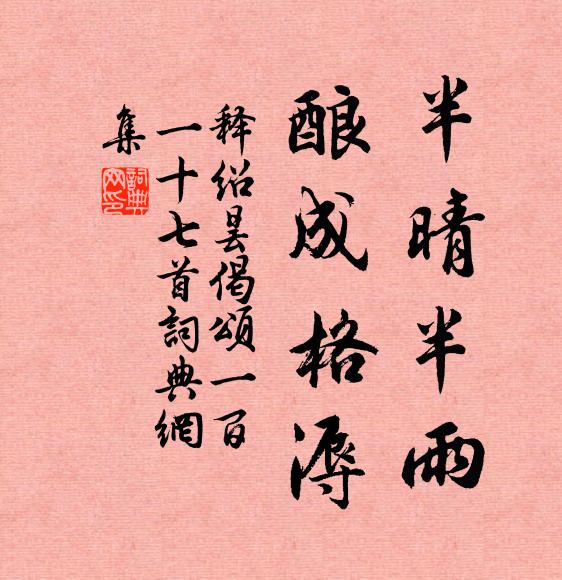 半晴半雨
酿成格溽
释绍昙偈颂一百
一十七首詞典網
集
詞典
网印